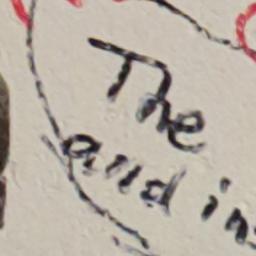 The
and in